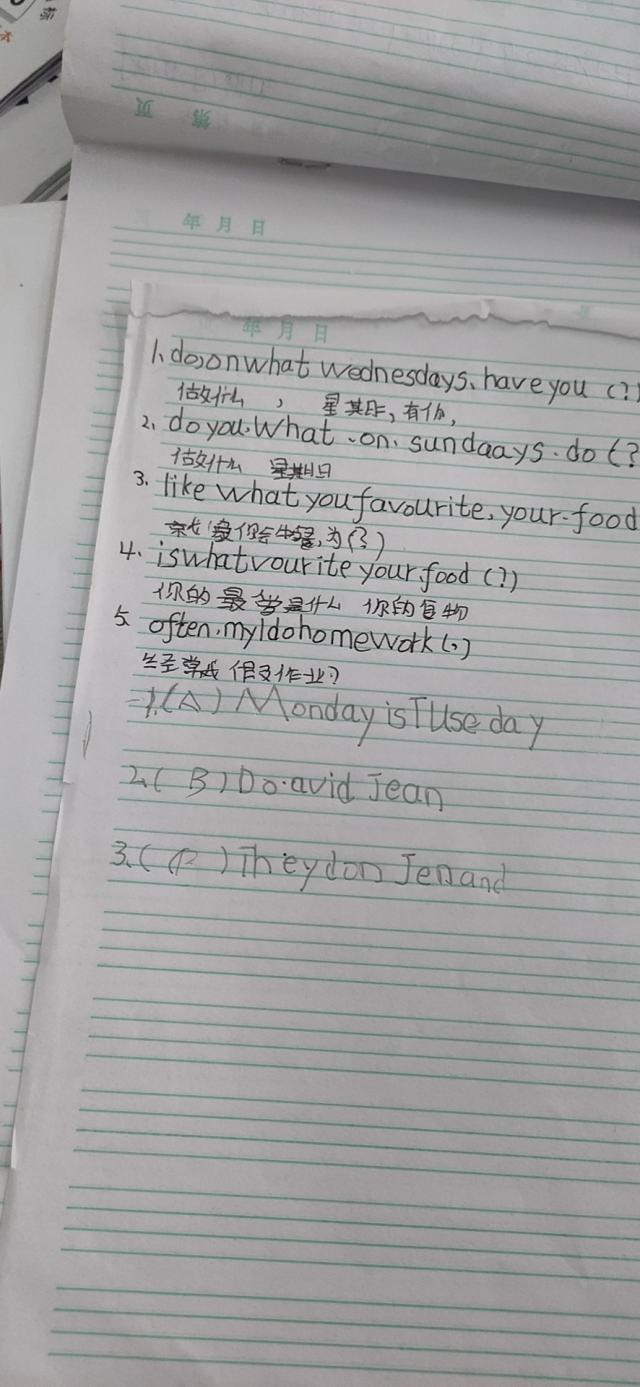 第 页
年 月 日
年 月 日
1. do, on what wednesdays, have you (?)
做什么 , 星期三, 有你,
2. do you. What . on. sundaays. do (?
做什么 星期日
3. like what you favourite, your. food
为(?)
4. is what vourite your food (?)
你的 最 是什么 你的食物
5. often. my I do homework (.)
经常 我 做 作业
1. (A) Monday is TUse day
2. (B) Do. avid Jean
3. ( ) They don Jenand